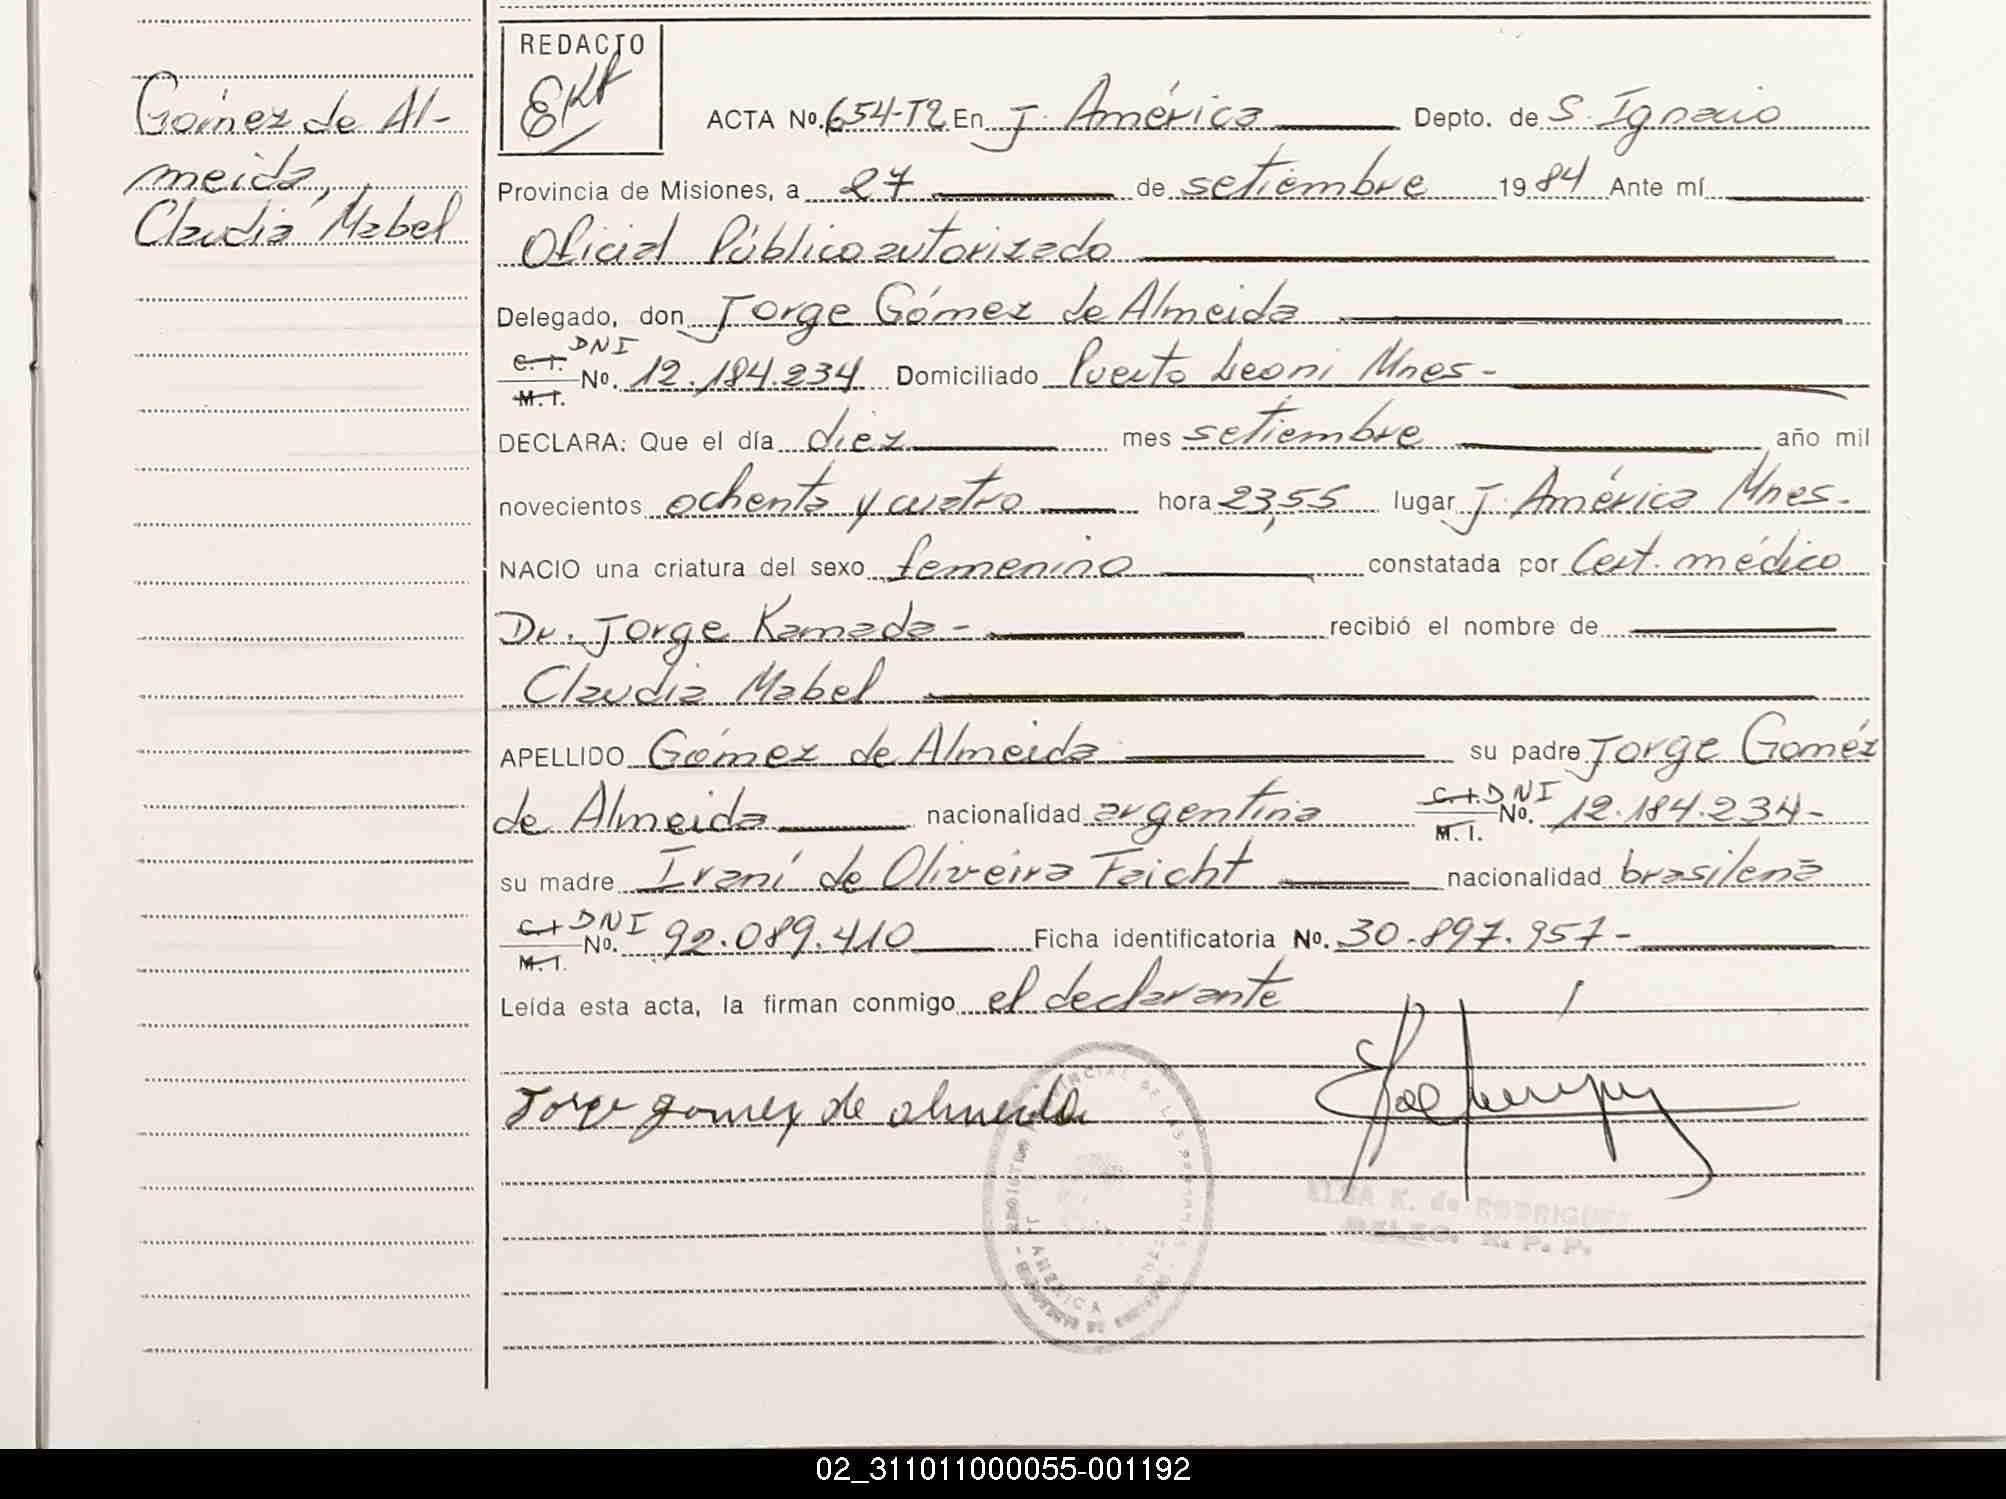 Gómez de Al-
meida,
Claudia Mabel
REDACTO
ACTA No. 654-T2 En J. América Depto. de S. Ignacio
Provincia de Misiones, a 27 de setiembre 1984 Ante mí
Oficial Público autorizado
Delegado, don Jorge Gómez de Almeida
C. I. DNI
M. I. No. 12.184.234 Domiciliado Puerto Leoni Mnes-
DECLARA: Que el día diez mes setiembre año mil
novecientos ochenta y cuatro hora 23,55 lugar J. América Mnes-
NACIO una criatura del sexo femenino constatada por Cert. médico
Dr. Jorge Kamada- recibió el nombre de
Claudia Mabel
APELLIDO Gómez de Almeida su padre Jorge Goméz
de Almeida nacionalidad argentina C. I. DNI M. I. No. 12.184.234-
su madre Iraní de Oliveira Faicht nacionalidad brasilena
C. I. DNI M. I. No. 92.089.410 Ficha identificatoria No. 30.897.957-
Leída esta acta, la firman conmigo el declarante
Jorge gomez de almeida
ELSA K. de RODRIGUEZ
DELEG. R. P. P.
J. AMERICA
02_311011000055-001192